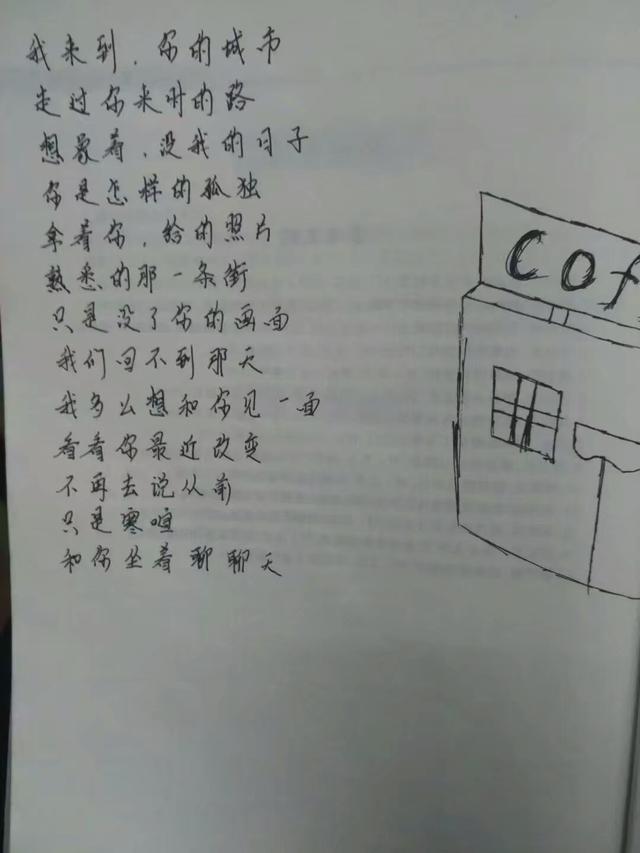 我来到，你的城市
走过你来时的路
想象着，没我的日子
你是怎样的孤独
拿着你，给的照片
熟悉的那一条街
只是没了你的画面
我们回不到那天
我多么想和你见一面
看看你最近改变
不再去说从前
只是寒喧
和你坐着聊聊天
Cof